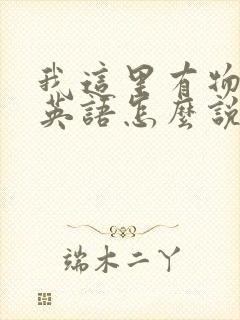 我這里有物
英語怎麼說
端木二丫